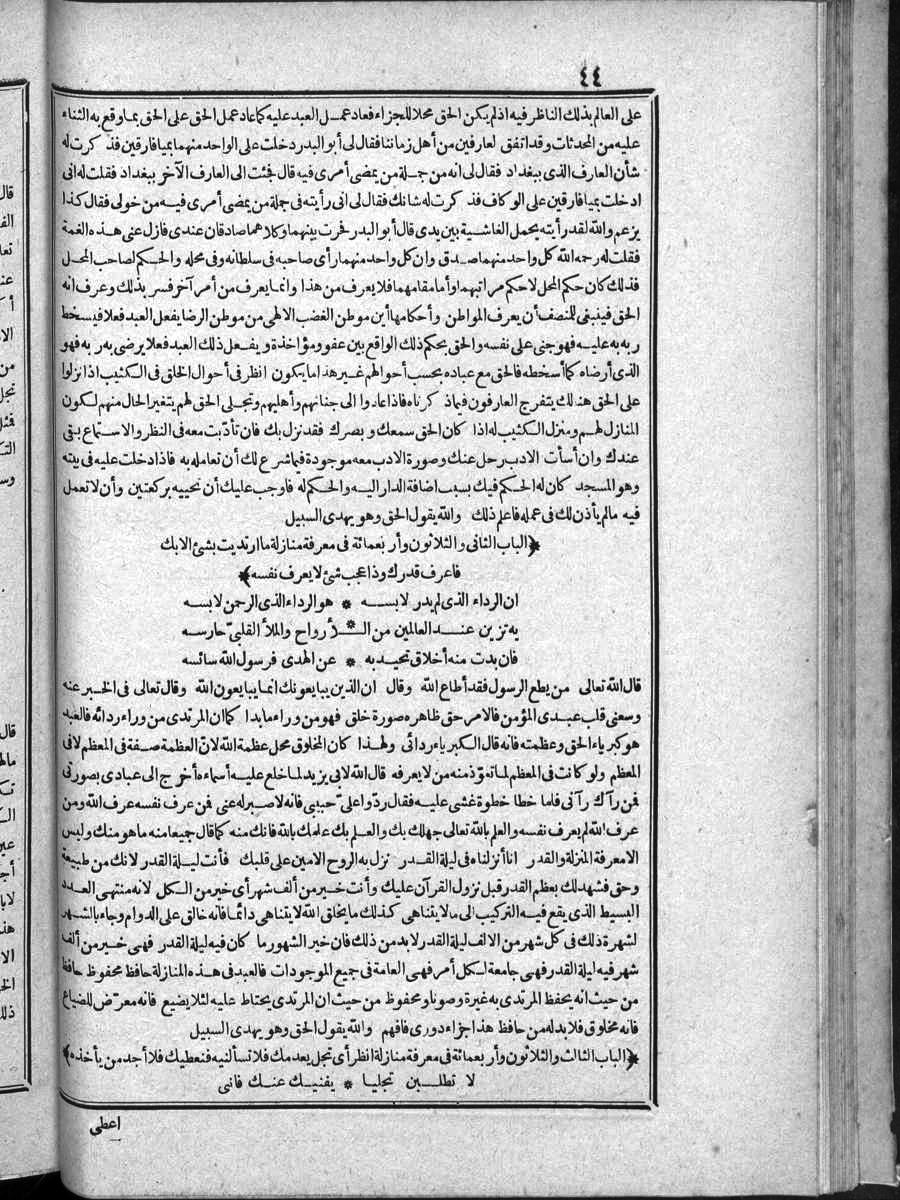 ٤٤
على العالم بذلك الناظر فيه اذ لم يكن الحق محلا للجزاء فعاد عمل العبد عليه كما عاد عمل الحق على الحق بما وقع به الثناء
عليه من المحدثات وقد اتفق لعارفين من أهل زماننا فقال لى أبو البدر دخلت على الواحد منهما بميافارقين فذكرت له
شأن العارف الذى ببغداد فقال لى انه من جملة من يمضى أمرى فيه قال فجئت الى العارف الآخر ببغداد فقلت له انى
ادخلت بميافارقين على الوكاف فذكرت له شانك فقال لى انى رأيته فى جملة من يمضى أمرى فيه من خولى فقال كذا
يزعم والله لقد رأيته يحمل الغاشية بين يدى قال أبو البدر فحرت بينهما وكلاهما صادقان عندى فازل عنى هذه الغمة
فقلت له رحمه الله كل واحد منهما صدق وان كل واحد منهما رأى صاحبه فى سلطانه وفى محله والحكم لصاحب المحل
فذلك كان حكم المحل لا حكم مراتبهما وأما مقامهما فلا يعرف من هذا وانما يعرف من أمر آخر فسر بذلك وعرف انه
الحق فينبغى للنصف أن يعرف المواطن وأحكامها أين موطن الغضب الالهى من موطن الرضا يفعل العبد فعلا فيسخط
ربه به عليه فهو جنى على نفسه والحق بحكم ذلك الواقع بين عفو ومؤاخذة ويفعل ذلك العبد فعلا يرضى به ربه فهو
الذى أرضاه كما أسخطه فالحق مع عباده بحسب أحوالهم غير هذا ما يكون انظر فى أحوال الخلق فى الكثيب اذا نزلوا
على الحق هنالك يتفرج العارفون فيما ذكرناه فاذا عادوا الى جناتهم وأهليهم وتجلى الحق لهم يتغير الحال منهم لكون
المنازل لهم ومنزل الكثيب له اذا كان الحق سمعك وبصرك فقد نزل بك فان تأدبت معه فى النظر والاستماع بقى
عندك وان أسأت الادب رحل عنك وصورة الادب معه موجودة فيما شرع لك أن تعامله به فاذا دخلت عليه فى بيته
وهو المسجد كان له الحكم فيك بسبب اضافة الدار اليه والحكم له فاوجب عليك أن تحييه بركعتين وأن لا تعمل
فيه مالم يأذن لك فى عمله فاعلم ذلك والله يقول الحق وهو يهدى السبيل
﴿الباب الثانى والثلاثون وأربعمائة فى معرفة منازلة ما ارتديت بشئ الا بك
فاعرف قدرك وذا عجب شئ لا يعرف نفسه﴾
ان الرداء الذى لم يدر لابسه * هو الرداء الذى الرحمن لابسه
به تزين عند العالمين من الأرواح * والملأ القلبىّ حارسه
فان بدت منه أخلاق تحيد به * عن الهدى فرسول الله سائسه
قال الله تعالى من يطع الرسول فقد أطاع الله وقال ان الذين يبايعونك انما يبايعون الله وقال تعالى فى الخبر عنه
وسعنى قلب عبدى المؤمن فالامر حق ظاهره صورة خلق فهو من وراء ما بدا كما ان المرتدى من وراء ردائه فالعبد
هو كبرياء الحق وعظمته فانه قال الكبرياء ردائى ولهذا كان المخلوق محل عظمة الله لانّ العظمة صفة فى المعظم لا فى
المعظم ولو كانت فى المعظم لما تعوّذ منه من لا يعرفه قال الله لابى يزيد لما خلع عليه أسماءه أخرج الى عبادى بصورتى
فمن رآك رآنى فلما خطا خطوة غشى عليه فقال ردّوا علىّ حبيبى فانه لا صبر له عنى فمن عرف نفسه عرف الله ومن
عرف الله لم يعرف نفسه والعلم بالله تعالى جهلك بك والعلم بك علمك بالله فانك منه كما قال جميعا منه ما هو منك وليس
الا معرفة المنزلة والقدر انا أنزلناه فى ليلة القدر نزل به الروح الامين على قلبك فأنت ليلة القدر لانك من طبيعة
وحق فشهد لك بعظم القدر قبل نزول القرآن عليك وأنت خير من ألف شهر أى خير من الكل لانه منتهى العدد
البسيط الذى يقع فيه التركيب الى ما لا يتناهى كذلك ما يخلق الله لا يتناهى دائما فانه خالق على الدوام وجاء بالشهر
لشهرة ذلك فى كل شهر من الالف ليلة القدر لابد من ذلك فان خير الشهور ما كان فيه ليلة القدر فهى خير من ألف
شهر فيه ليلة القدر فهى جامعة لكل أمر فهى العامة فى جميع الموجودات فالعبد فى هذه المنازلة حافظ محفوظ حافظ
من حيث انه يحفظ المرتدى به غيرة وصونا ومحفوظ من حيث ان المرتدى يحتاط عليه لئلا يضيع فانه معرّض للضياع
فانه مخلوق فلابد له من حافظ هذا جزاء دورى فافهم والله يقول الحق وهو يهدى السبيل
﴿الباب الثالث والثلاثون وأربعمائة فى معرفة منازلة انظر أى تجل يعدمك فلا تسألنيه فنعطيك فلا أجد من يأخذه﴾
لا تطلبن تجليا * يفنيك عنك فانى
اعطى